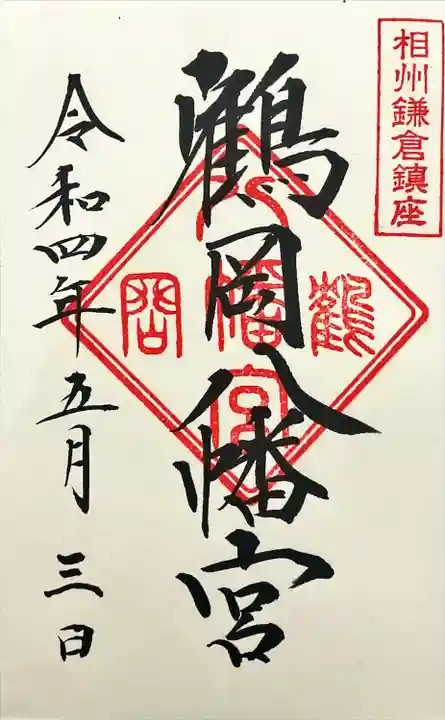 相州鎌倉鎮座
鶴岡八幡宮
鶴岡八幡宮
令和四年五月三日